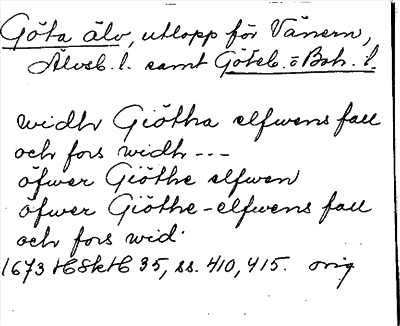 Göta älv, utlopp för Vänern,
Älvsb. l. samt Göteb. o Boh. l.
widh Giötha elfwens fall
och fors widh ---
öfwer Giöthe elfwen
öfwer Giöthe-elfwens fall
och fors wid
1673 HSkH 35, ss. 410, 415. orig